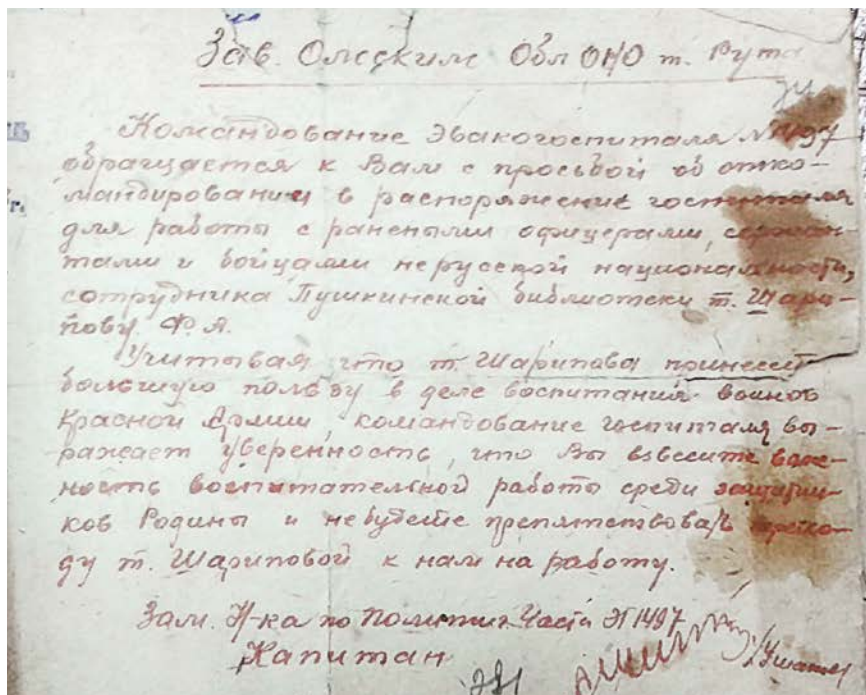 Зав. Омским ОблОНО т. Рута
Командование Эвакогоспиталя № 1497
обращается к Вам с просьбой об отко-
мандировании в распоряжение госпиталя
для работы с ранеными офицерами, сержан-
тами и бойцами нерусской национальности,
сотрудника Пушкинской библиотеки т. Шари-
пову Ф.Я.
Учитывая что т. Шарипова принесет
большую пользу в деле воспитания воинов
Красной Армии, командование госпиталя вы-
ражает уверенность, что Вы взвесите важ-
ность воспитательной работы среди защитни-
ков Родины и не будете препятствовать перехо-
ду т. Шариповой к нам на работу.
Зам. Н-ка по Политич. Части ЭГ 1497
Капитан